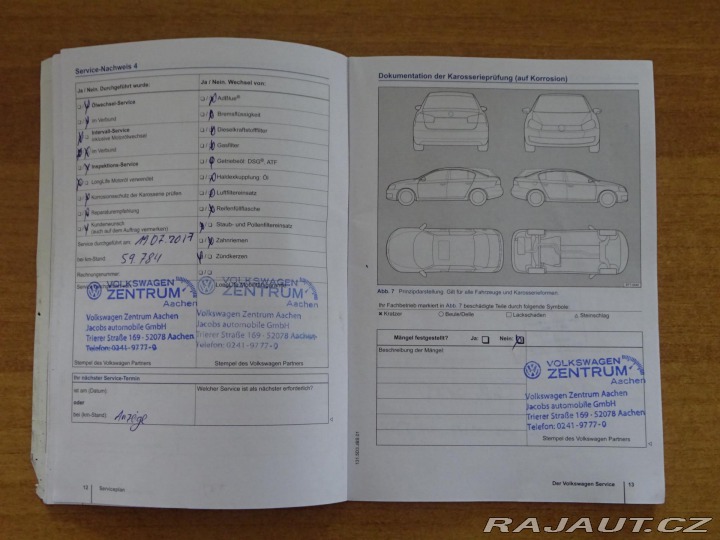 Service-Nachweis 4
Ja / Nein, Durchgeführt wurde:
Ölwechsel-Service
im Verbund
Intervall-Service
inklusive Motorölwechsel
im Verbund
Inspektions-Service
LongLife Motoröl verwendet
Korrosionsschutz der Karosserie prüfen
Reparaturempfehlung
Kundenwunsch
(auch auf dem Auftrag vermerken)
Service durchgeführt am: 19.07.2017
bei km-Stand: 59.784
Rechnungsnummer:
Ja / Nein, Wechsel von:
AdBlue®
Bremsflüssigkeit
Dieselkraftstofffilter
Gasfilter
Getriebeöl: DSG®, ATF
Haldexkupplung: Öl
Luftfiltereinsatz
Reifenfüllflasche
Staub- und Pollenfiltereinsatz
Zahnriemen
Zündkerzen
VOLKSWAGEN
ZENTRUM
Aachen
Volkswagen Zentrum Aachen
Jacobs automobile GmbH
Trierer Straße 169 · 52078 Aachen
Telefon: 0241-9777-0
Stempel des Volkswagen Partners
VOLKSWAGEN
ZENTRUM
Aachen
Volkswagen Zentrum Aachen
Jacobs automobile GmbH
Trierer Straße 169 · 52078 Aachen
Telefon: 0241-9777-0
Stempel des Volkswagen Partners
Ihr nächster Service-Termin
ist am (Datum)
oder
bei (km-Stand) Anzeige
Welcher Service ist als nächster erforderlich?
12 Serviceplan
Dokumentation der Karosserieprüfung (auf Korrosion)
Abb. 7 Prinzipdarstellung: Gilt für alle Fahrzeuge und Karosserieformen.
Ihr Fachbetrieb markiert in Abb. 7 beschädigte Teile durch folgende Symbole:
Kratzer Beule/Delle Lackschaden Steinschlag
Mängel festgestellt? Ja: Nein:
Beschreibung der Mängel:
VOLKSWAGEN
ZENTRUM
Aachen
Volkswagen Zentrum Aachen
Jacobs automobile GmbH
Trierer Straße 169 · 52078 Aachen
Telefon: 0241-9777-0
Stempel des Volkswagen Partners
Der Volkswagen Service 13
RAJAUT.CZ